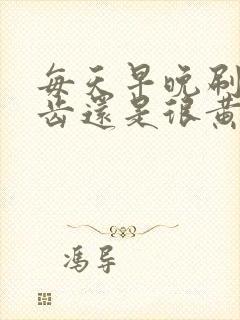 每天早晚刷
齿還是很黄
冯导